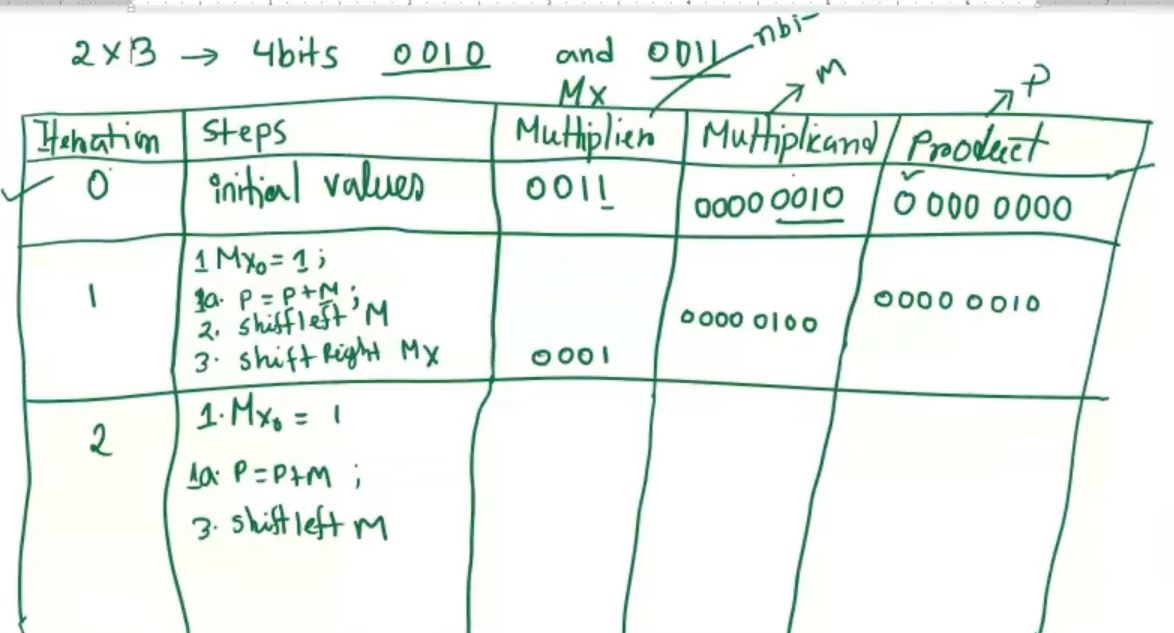 2×3 → 4bits 0010 and 0011 nbi-
Mx M P
Iteration Steps Multiplier Multiplicand Product
0 initial values 0011 0000 0010 0 000 0000
1 1 Mx₀ = 1;
1a. P = P+M; 0000 0010
2. shift left M 0000 0100
3. shift Right Mx 0001
2 1. Mx₀ = 1
1a. P=P+M ;
3. shift left M